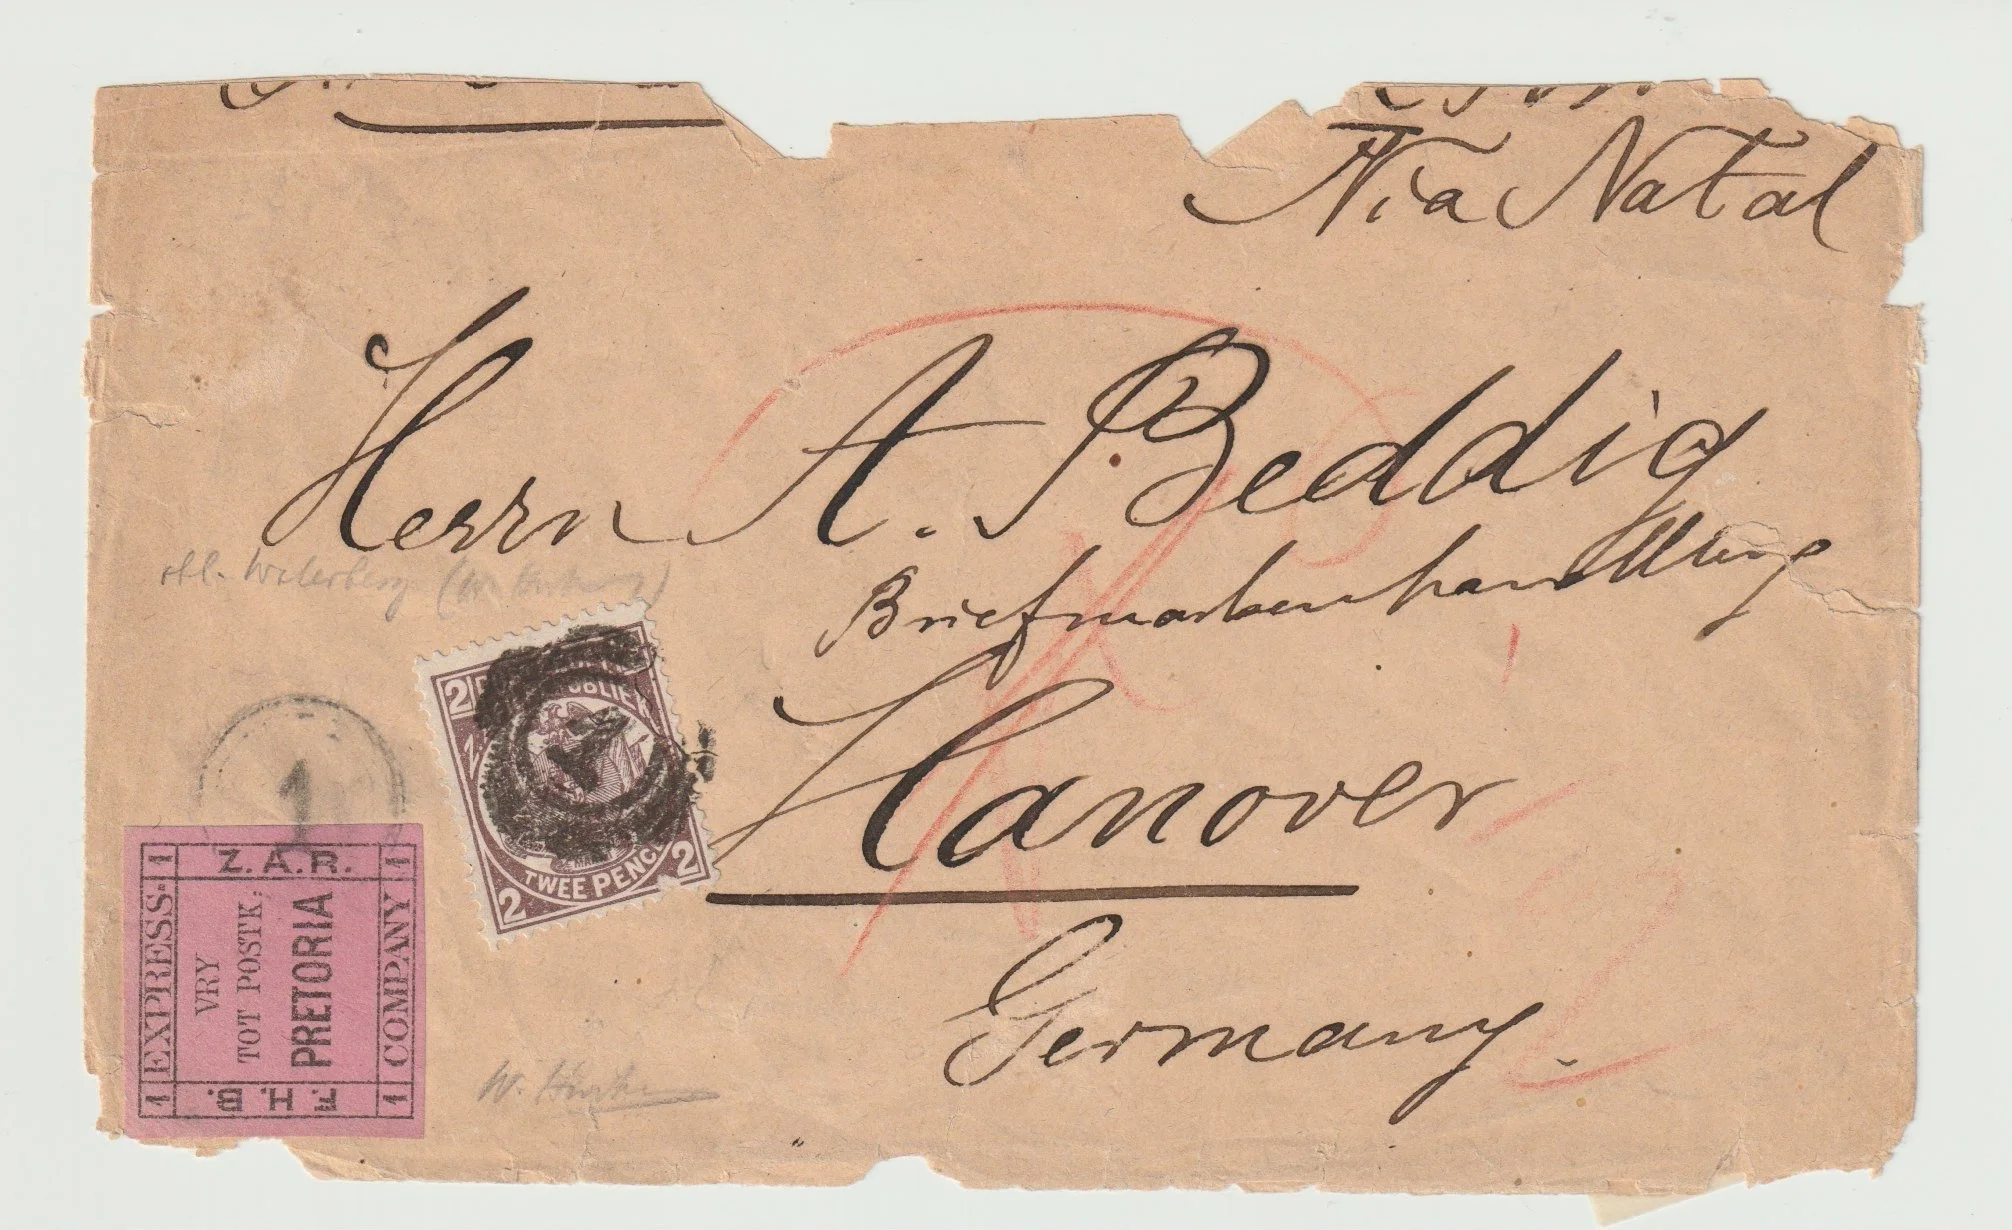 Via Natal
Herrn A. Beddig
Briefmarkenhandlung
Hanover
Germany.
2
TWEE PENCE
2 2
1
Z.A.R.
1 EXPRESS 1
VRY
TOT POSTK;
PRETORIA
1 COMPANY 1
F.H.B.
W.